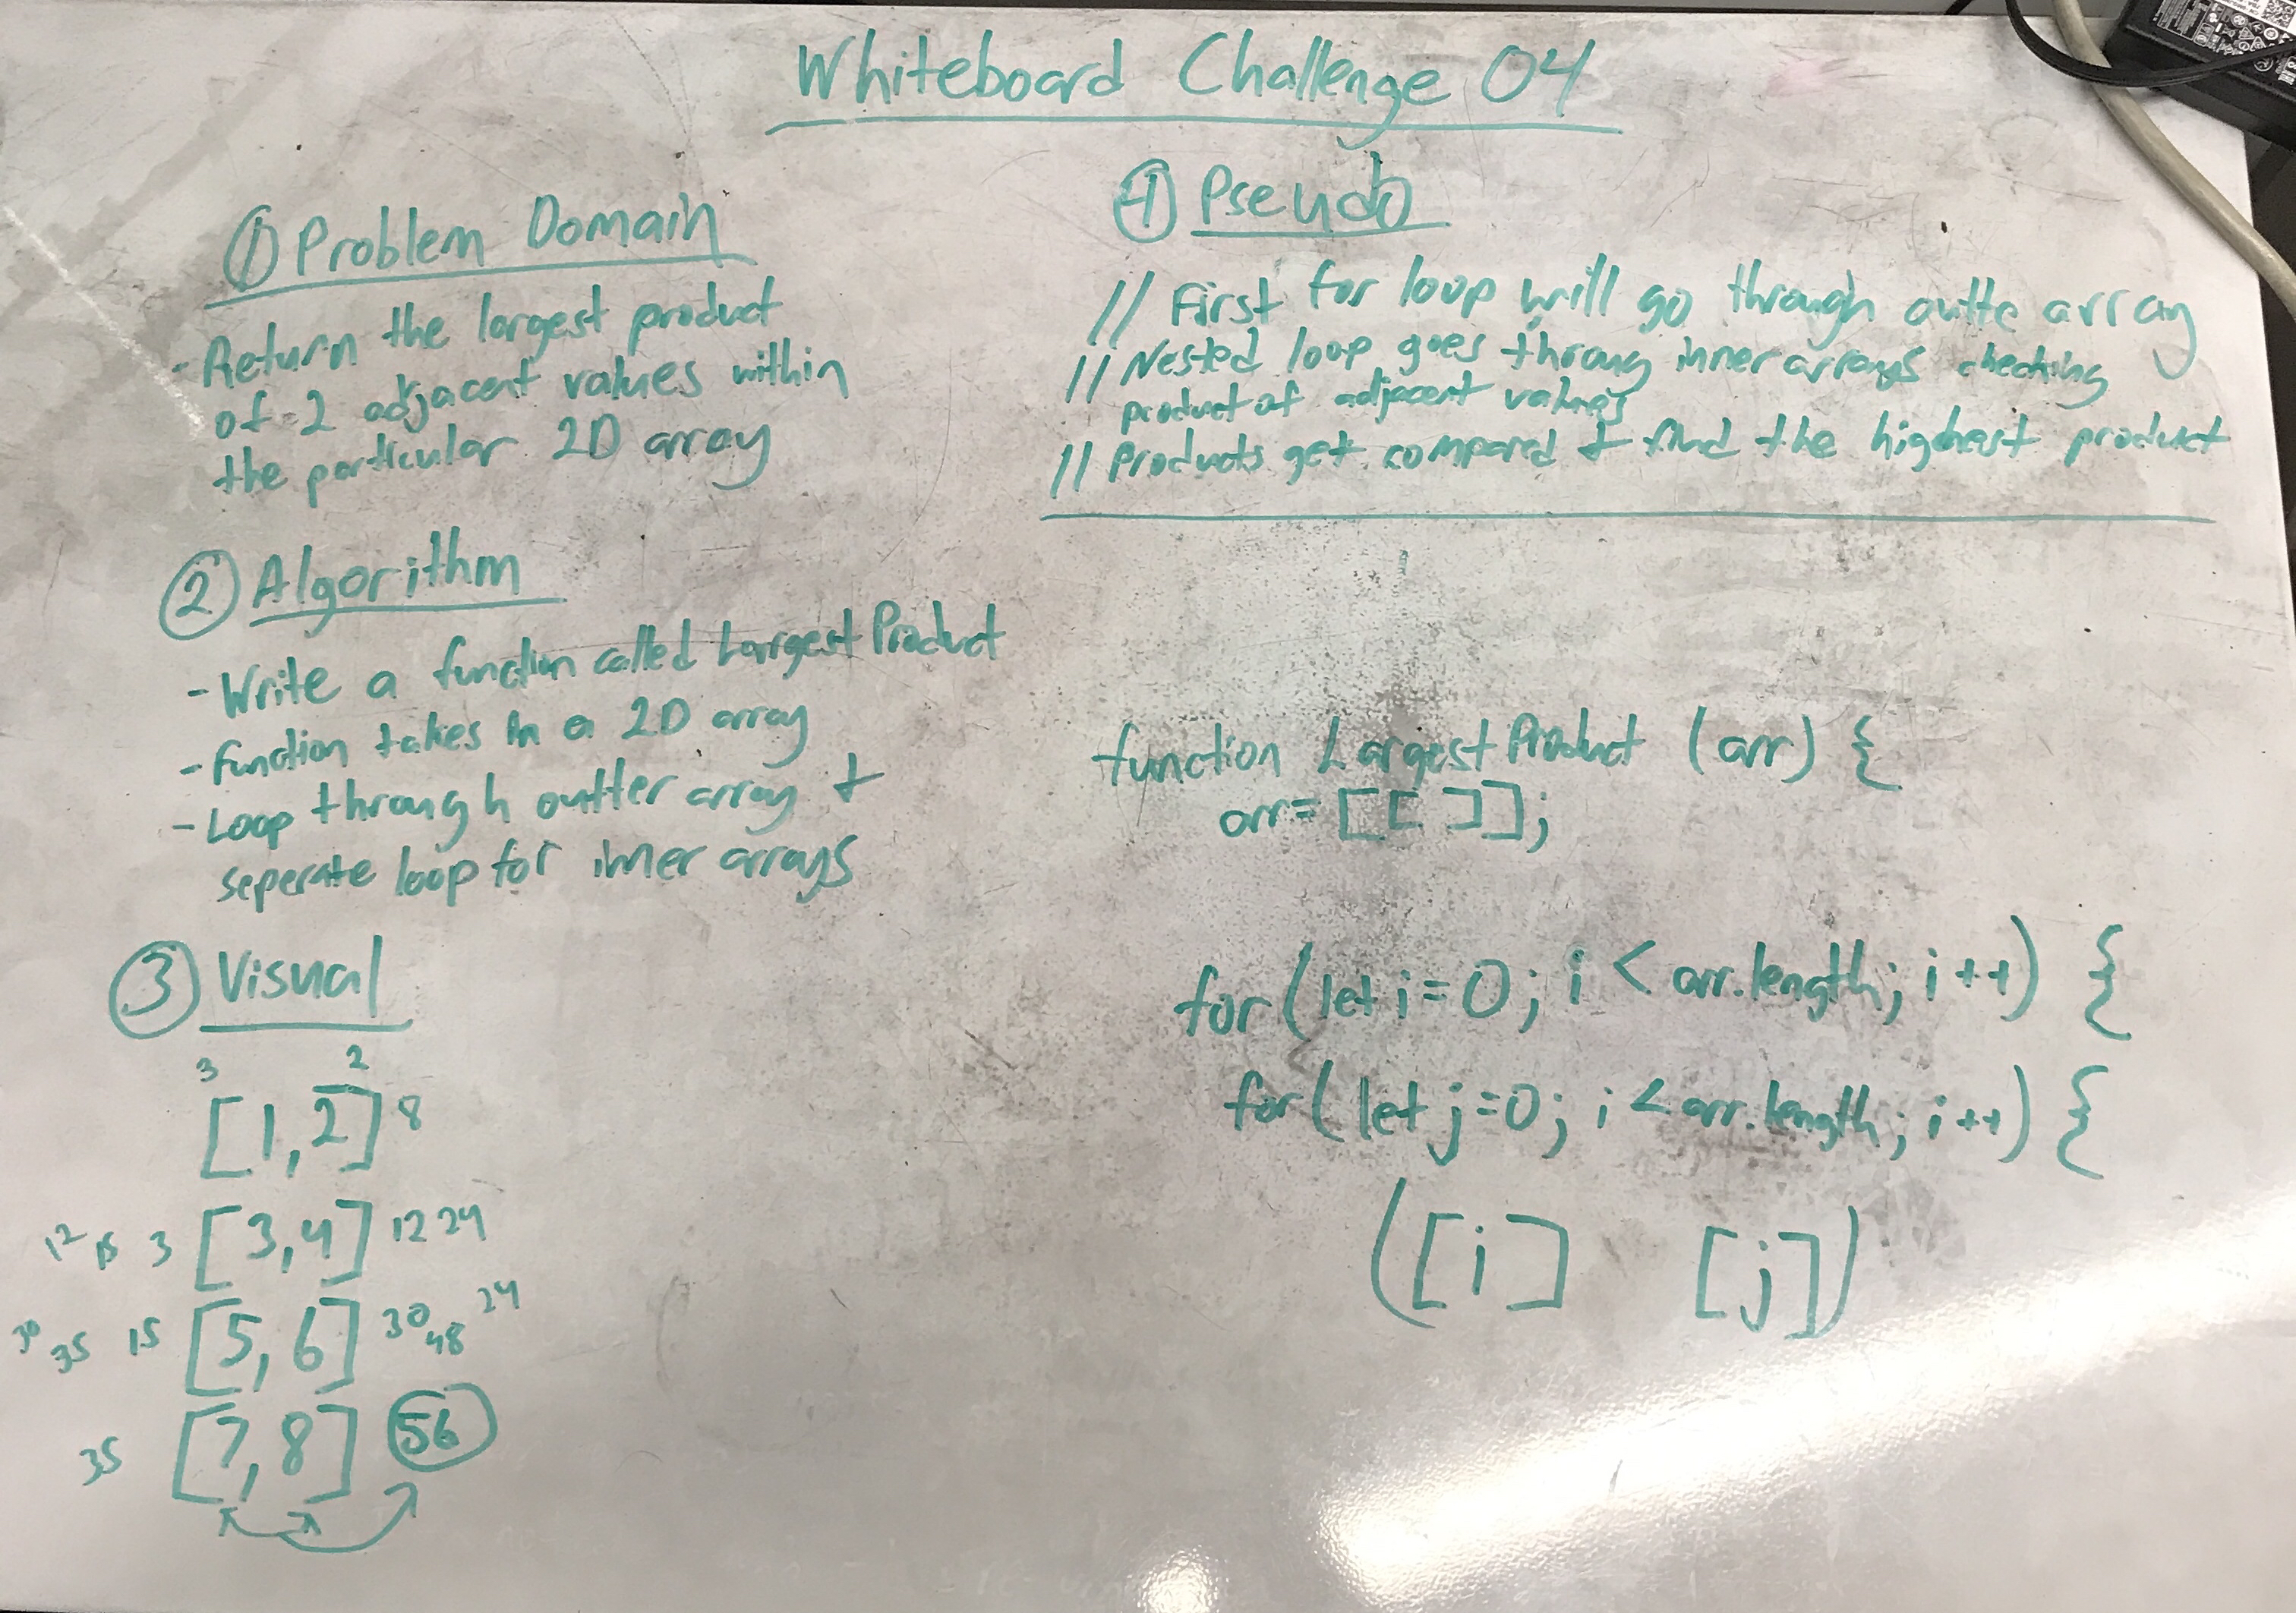 Whiteboard Challenge 04
① Problem Domain
- Return the largest product
of 2 adjacent values within
the particular 2D array
② Algorithm
- Write a function called LargestProduct
- function takes in a 2D array
- Loop through outter array +
seperate loop for inner arrays
③ Visual
3 2
[1,2] 8
12 15 3 [3,4] 12 24
30 35 15 [5,6] 30 48 24
35 [7,8] 56
④ Pseudo
// First for loop will go through outte array
// Nested loop goes throug inner arrays checking
product of adjacent values
// Products get compared + find the highest product
function LargestProduct (arr) {
arr= [[ ]];
for (let i=0; i < arr.length; i++) {
for (let j=0; i < arr.length; i++) {
([i] [j])